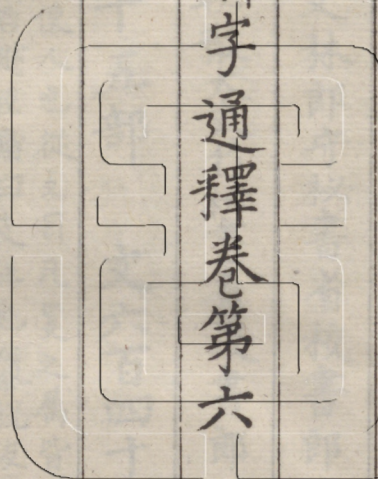 字通釋卷第六